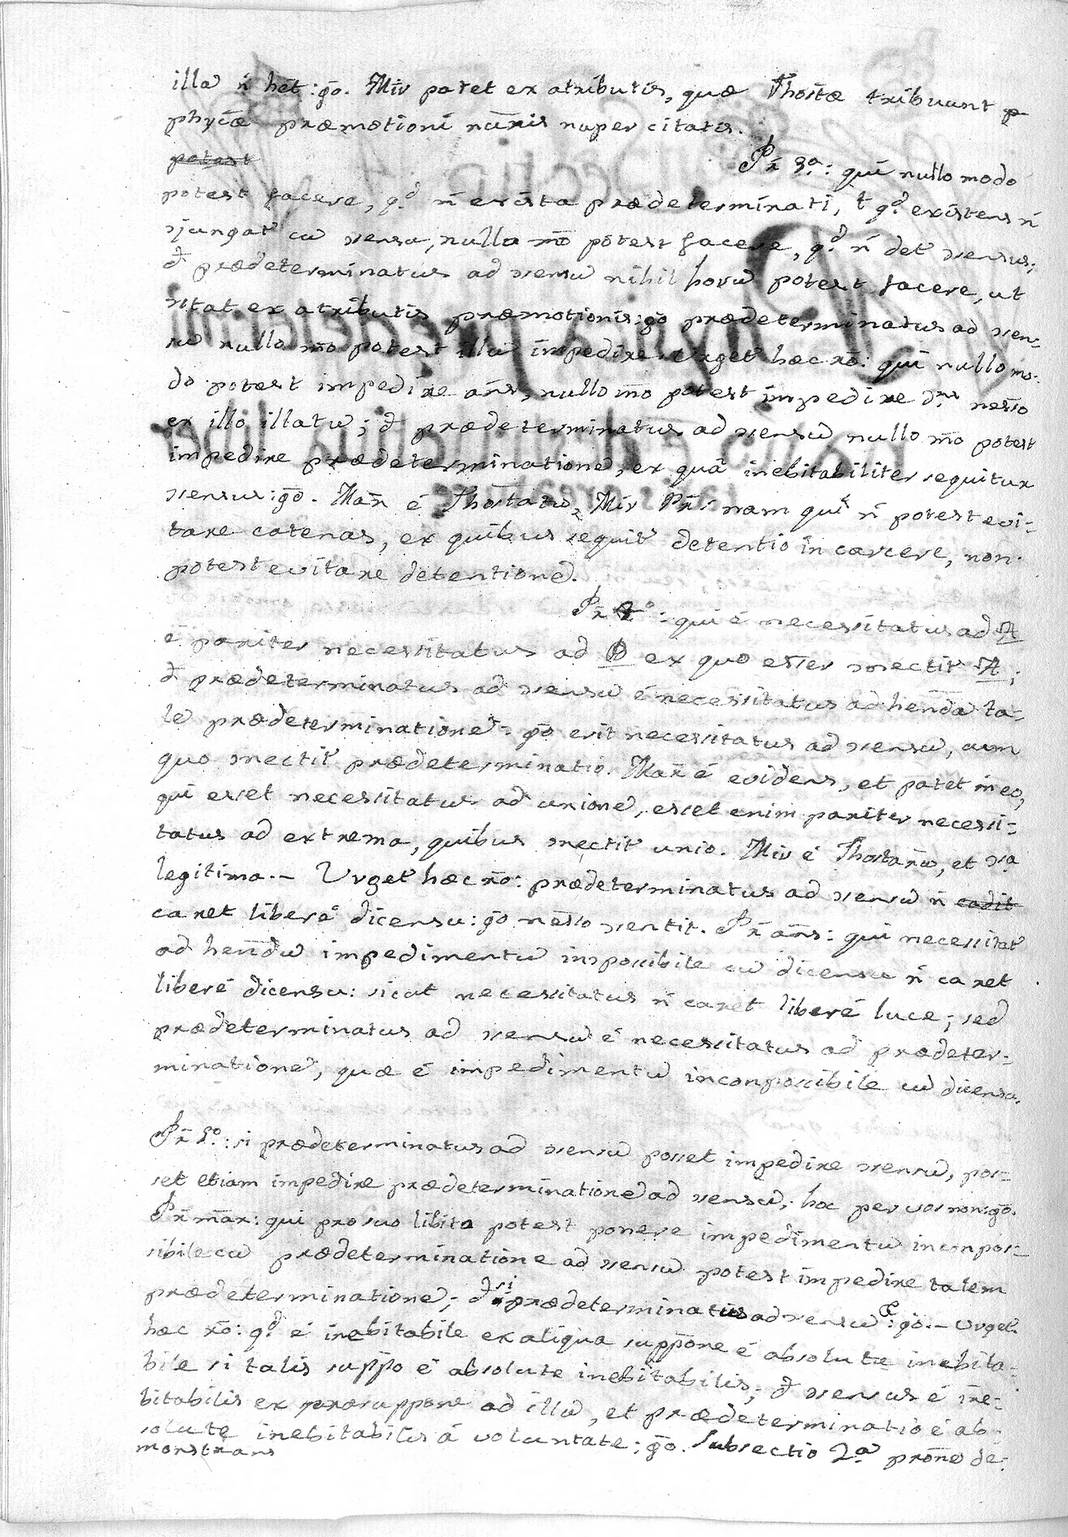 illa ñ hēt: gō. Miñ patet ex atributis, quæ Thostæ tribuunt p
phycæ præmotioni nūris nuper citatis.
potest
Pr̃ 3ª: qui nullo modo
potest facere, qᵈ ñ exista prædeterminati, t̃ qᵈ existens ñ
sjungat' cũ sensu, nullo mō potest facere, qᵈ ñ det' sensus;
d̃ prædeterminatus ad sensũ nihil horũ potest facere, ut
stat ex atributis præmotionis: gō prædeterminatus ad sen-
sũ nullo mō potest illũ impedire. Urget' hæc rō: qui nullo mo-
do potest impedire añs, nullo mō potest impedire
ex illo illatũ; d̃ prædeterminatus ad sensũ nullo mō potest
impedire prædeterminationẽ, ex quâ inebitabiliter sequitur
sensus: gō. Mar̃ ẽ Thostatũ, Miñ Pr̃: nam qui ñ potest evi-
tare catenas, ex quibus sequit' detentio in carcere, non
potest evitare detentionẽ.
Pr̃ 4º: qui ẽ necessitatus ad A
ẽ pariter necessitatus ad B ex quo esser snectit' A;
d̃ prædeterminatus ad sensũ ẽ necessitatus ad henda ta-
le prædeterminationẽ: gō erit necessitatus ad sensũ, cum
quo snectit' prædeterminatio. Mar̃ ẽ evidens, et patet in eo,
qui esset necessitatus ad unionẽ, esset enim pariter necessi-
tatus ad extrema, quibus snectit' unio. Miñ ẽ Thostar̃ũ, et sª
legitima. — Urget' hæc rō: prædeterminatus ad sensũ ñ cadit
caret liberẽ dicensu: gō neššo sentit. Pr̃ añs: qui necessitat'
ad hendũ impedimentũ imposibile cũ dicensu ñ caret
liberẽ dicensu: sicut necessitatus ñ caret liberẽ luce; sed
prædeterminatus ad sensũ ẽ necessitatus ad prædeter-
minationẽ, quæ ẽ impedimentũ inconposibile cũ dicensu.
Pr̃ 5º: si prædeterminatus ad sensũ posset impedire sensũ, pos-
set etiam impedire prædeterminationẽ ad sensũ; hoc per vos non: gō.
Pr̃ mar̃: qui pro suo libito potest ponere impedimentũ inconpos-
sibile cũ prædeterminatione ad sensũ potest impedire talem
prædeterminationẽ; d̃ si prædeterminatus ad sensũ &: gō. — Urget'
hæc rō: qᵈ ẽ inebitabile ex aliqua suppõne ẽ absolute inebita-
bile si talis suppõ ẽ absolute inebitabilis; d̃ sensus ẽ ine-
bitabilis ex præsuppõne ad illũ, et prædeterminatio ẽ ab-
solute inebitabilis á voluntate: gō. Subsectio 2ª prõne de-
monstrans